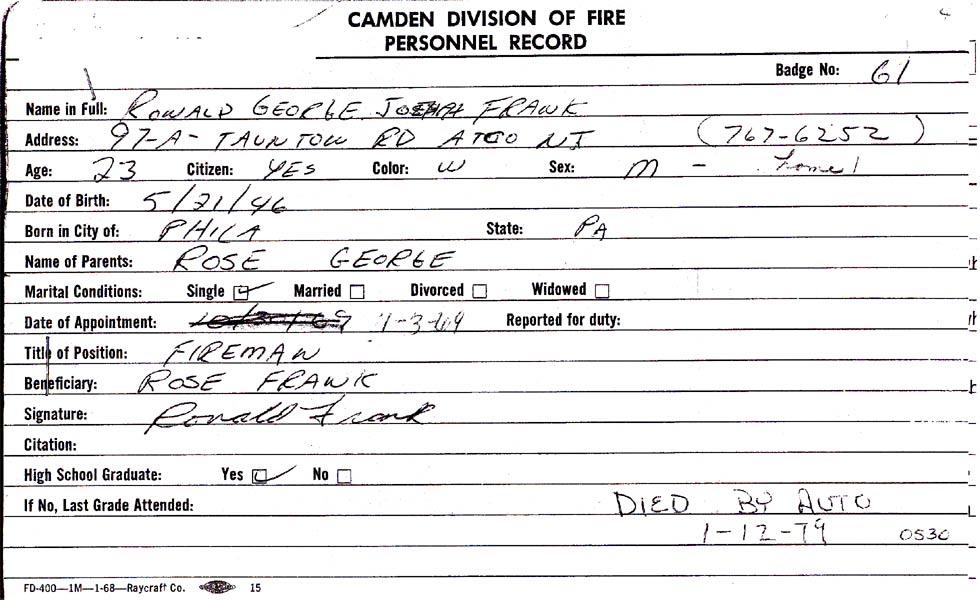 CAMDEN DIVISION OF FIRE
PERSONNEL RECORD
Badge No: 61
Name in Full: RONALD GEORGE JOSEPH FRANK
Address: 97-A- TAUNTON RD ATCO NJ (767-6252)
Age: 23 Citizen: YES Color: W Sex: M -
Date of Birth: 5/21/46
Born in City of: PHILA State: PA
Name of Parents: ROSE GEORGE
Marital Conditions: Single Married Divorced Widowed
Date of Appointment: Reported for duty:
Title of Position: FIREMAN
Beneficiary: ROSE FRANK
Signature: Ronald Frank
Citation:
High School Graduate: Yes No
If No, Last Grade Attended: DIED BY AUTO
1-12-79 0530
FD-400—1M—1-68—Raycraft Co. 15